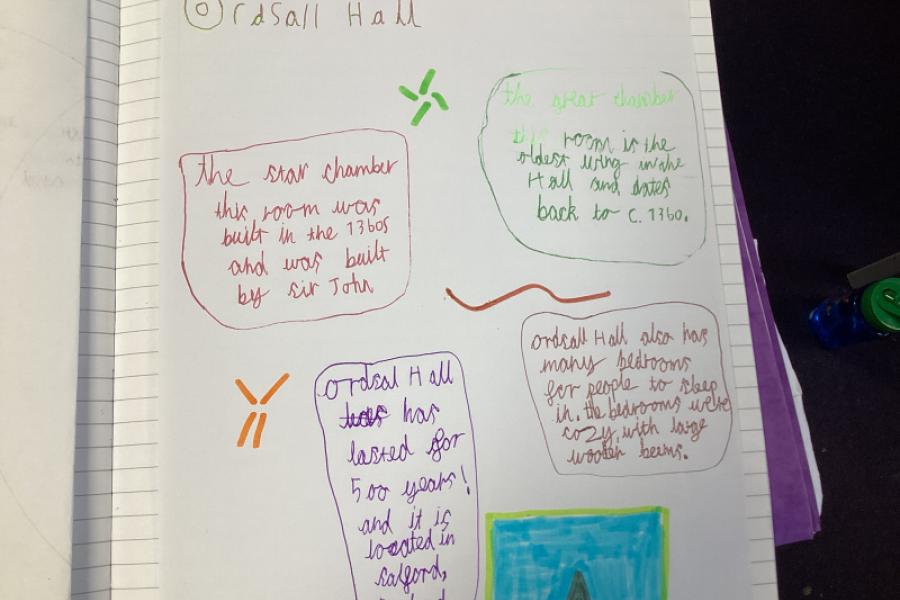 Ordsall Hall
the star chamber
this room was
built in the 1360s
and was built
by sir John
the great chamber
this room is the
oldest wing in the
Hall and dates
back to c. 1360.
ordsall Hall also has
many bedrooms
for people to sleep
in. the bedrooms were
cozy, with large
wooden beems.
Ordsal Hall
has
lasted for
500 years!
and it is
located in
salford,